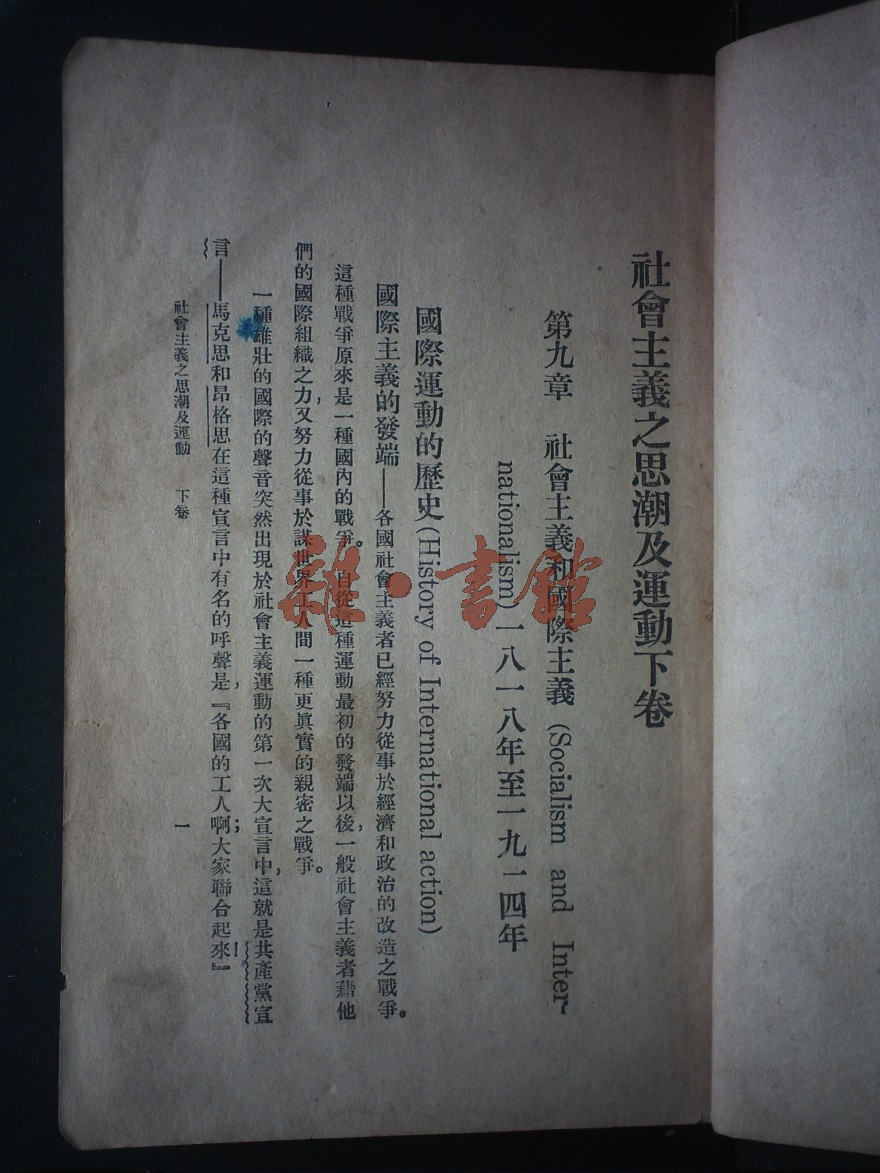 社會主義之思潮及運動下卷
第九章　社會主義和國際主義 (Socialism and Inter-
nationalism) 一八一八年至一九一四年
國際運動的歷史 (History of International action)
國際主義的發端——各國社會主義者已經努力從事於經濟和政治的改造之戰爭。
這種戰爭原來是一種國內的戰爭。自從這種運動最初的發端以後，一般社會主義者藉他
們的國際組織之力，又努力從事於謀世界工人間一種更眞實的親密之戰爭。
一種雄壯的國際的聲音突然出現於社會主義運動的第一次大宣言中，這就是共產黨宣
言——馬克思和昂格思在這種宣言中有名的呼聲是，『各國的工人啊；大家聯合起來！』
社會主義之思潮及運動　下卷
一
雜·書館